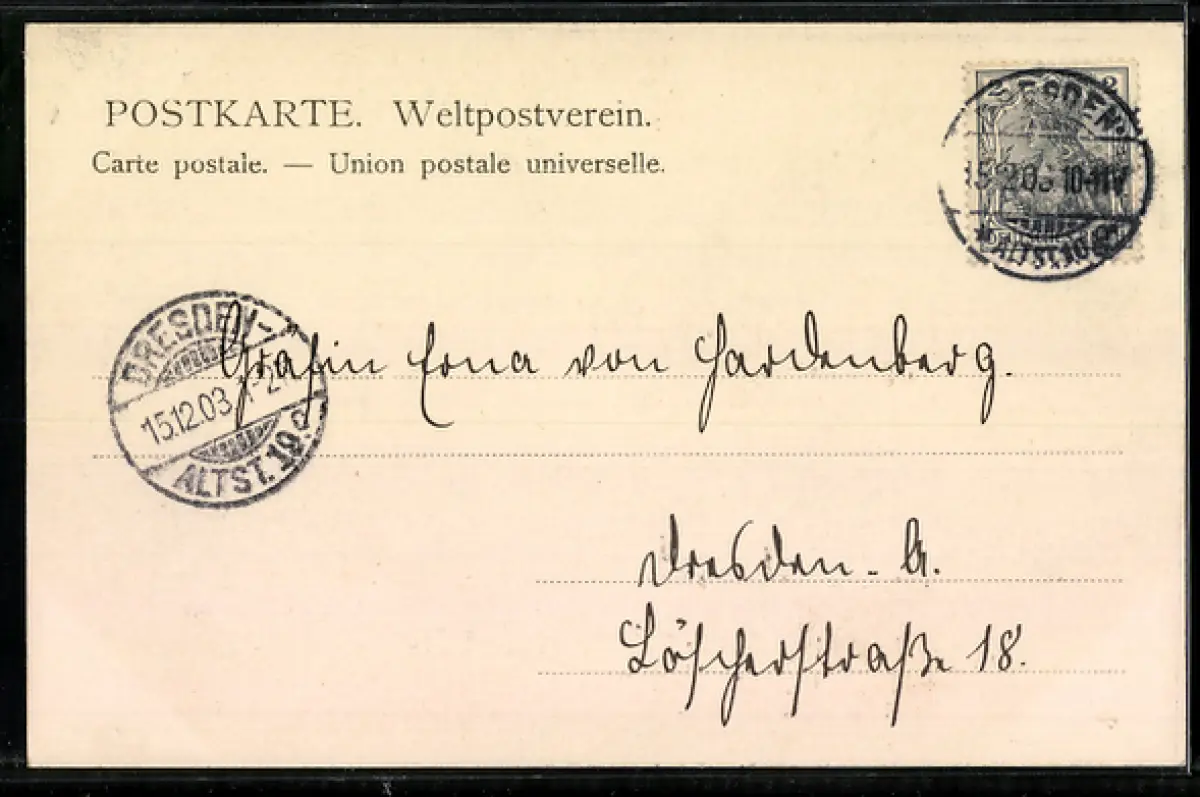 POSTKARTE. Weltpostverein.
Carte postale. — Union postale universelle.
DRESDEN
10-11V
ALTST.
DRESDEN-
15.12.03
ALTST. 19.
Gräfin Erna von Hardenberg.
Dresden-A.
Löscherstraße 18.